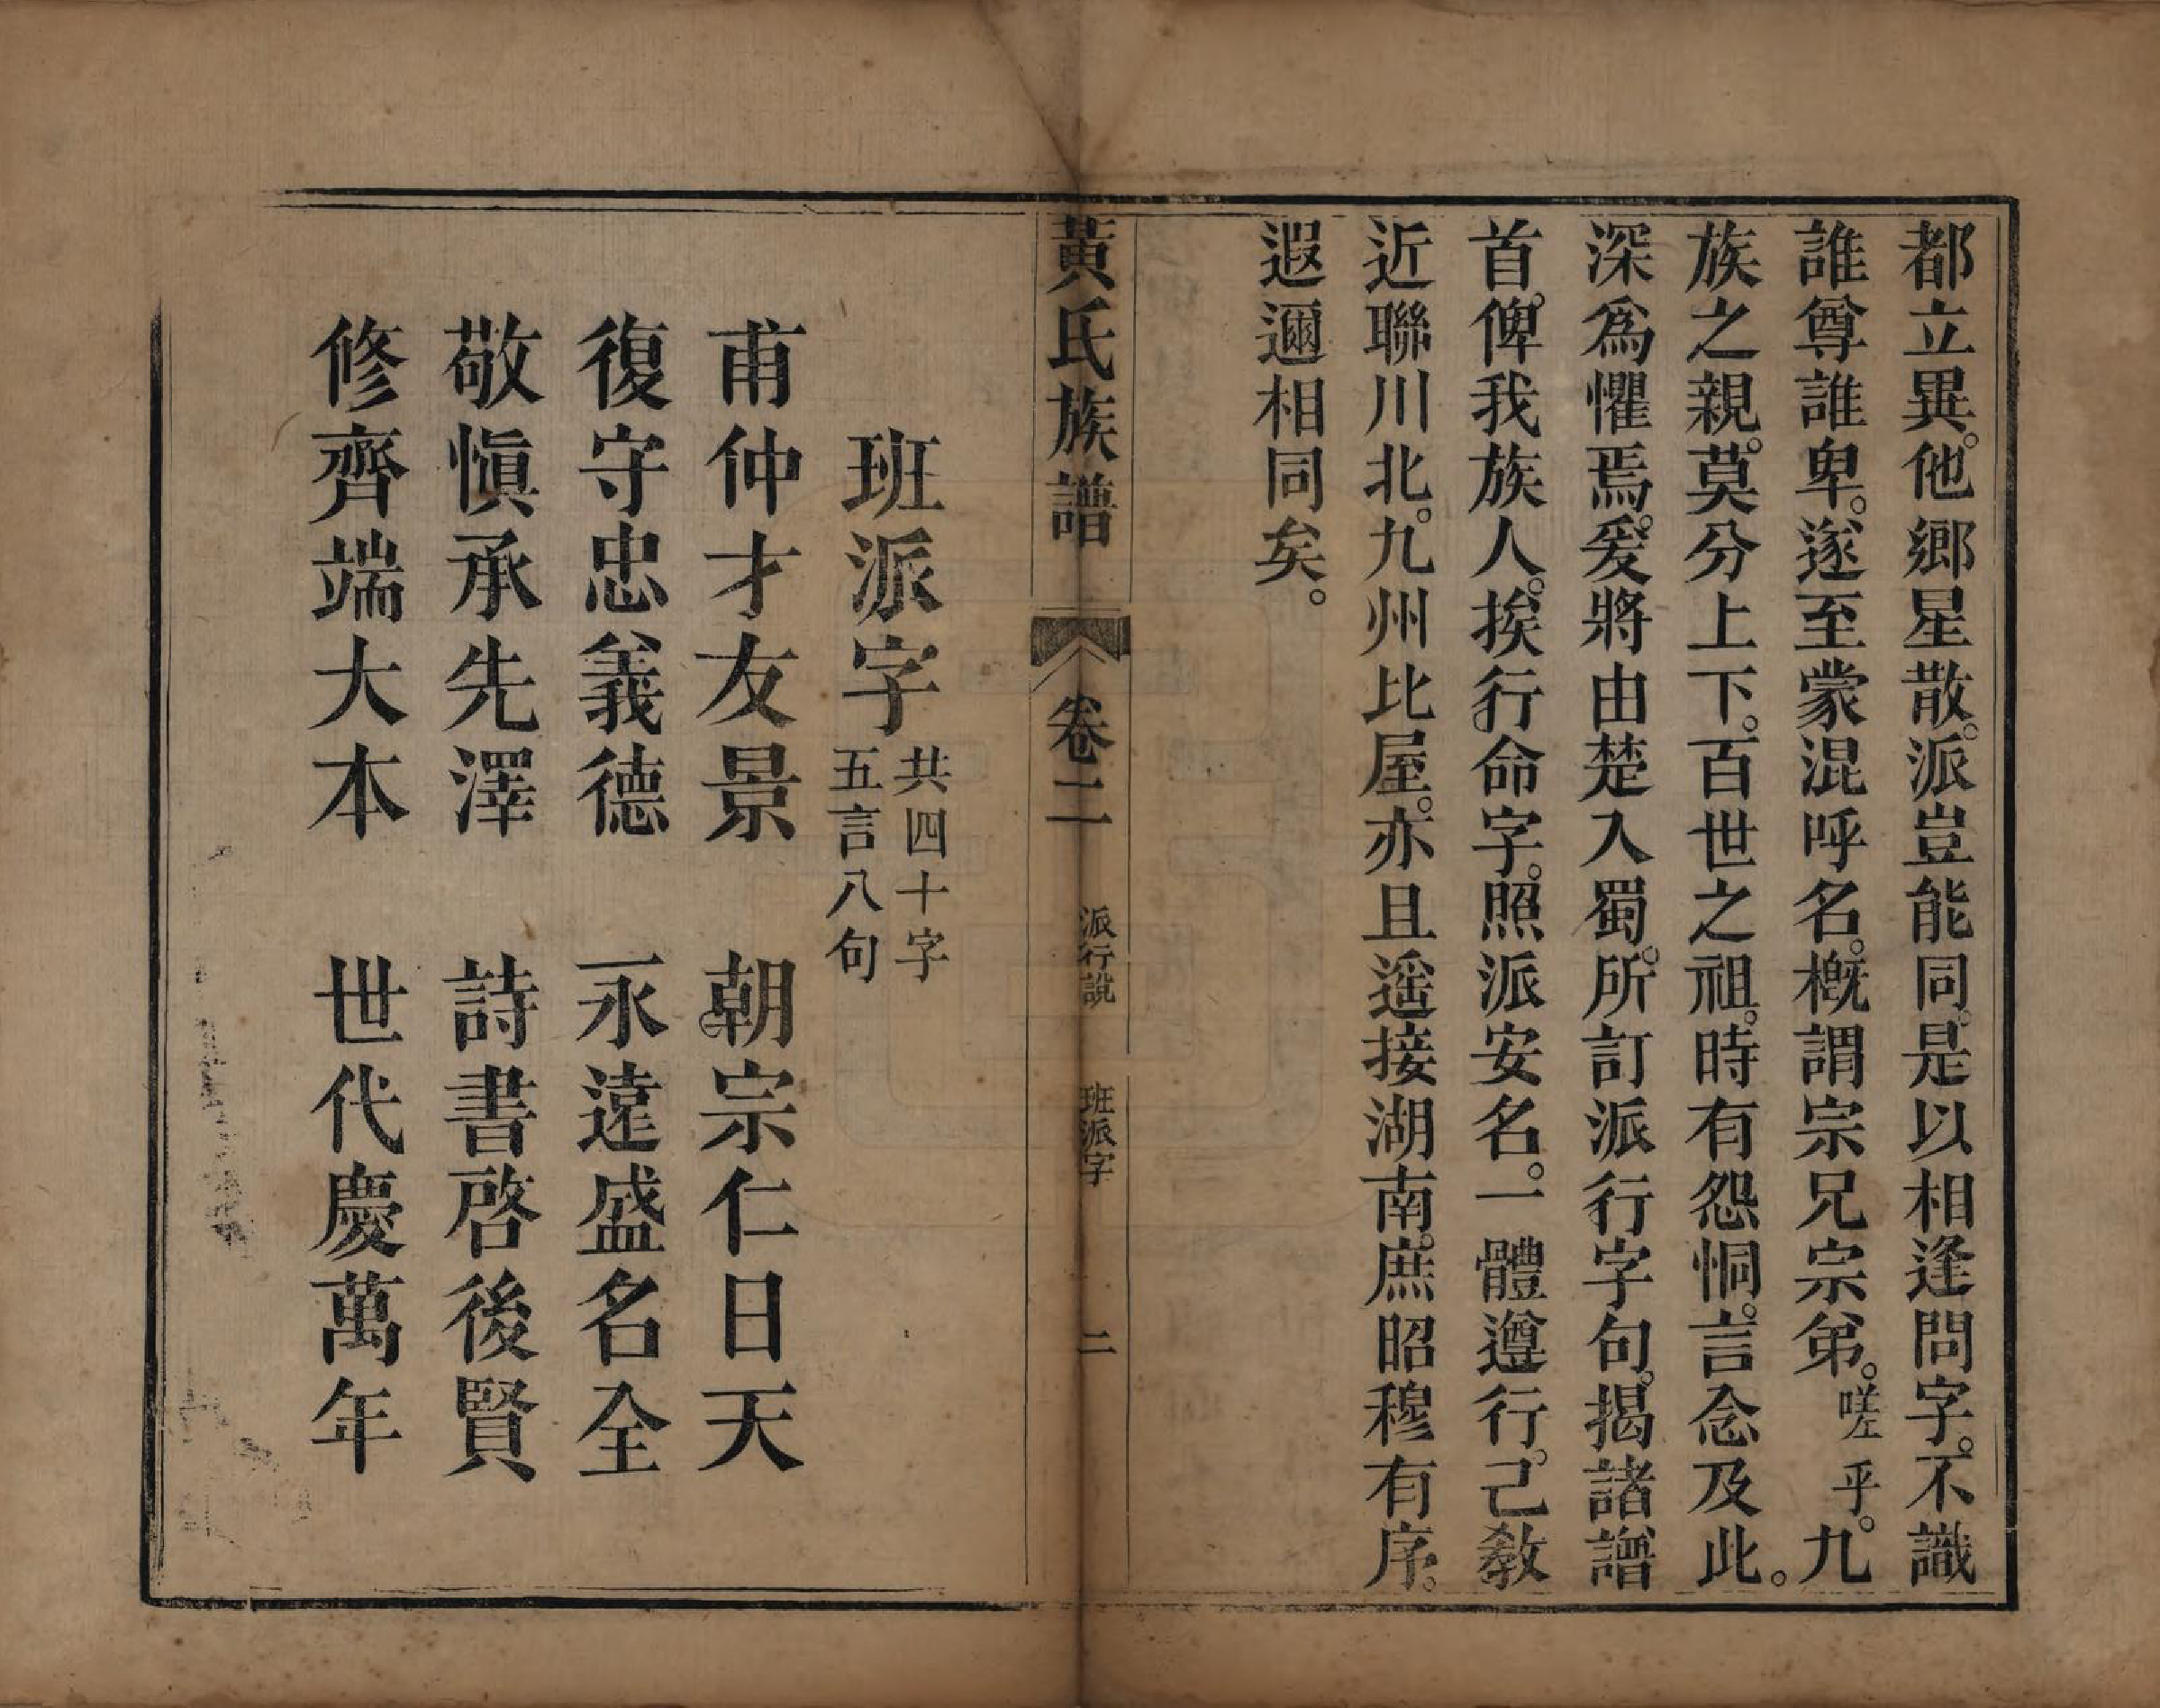 都立異。他鄉星散。派豈能同。是以相逢問字。不識
誰尊誰卑。遂至蒙混呼名。槪謂宗兄宗弟。嗟乎。九
族之親。莫分上下。百世之祖。時有怨恫。言念及此。
深爲懼焉。爰將由楚入蜀。所訂派行字句。揭諸譜
首。俾我族人。挨行命字。照派安名。一體遵行。己敎
近聯川北。九州比屋。亦且遥接湖南。庶昭穆有序。
遐邇相同矣。
黃氏族譜 卷二 派行說 班派字 二
班派字 共四十字 五言八句
甫仲才友景 朝宗仁日天
復守忠義德 永遠盛名全
敬愼承先澤 詩書啓後賢
修齊端大本 世代慶萬年